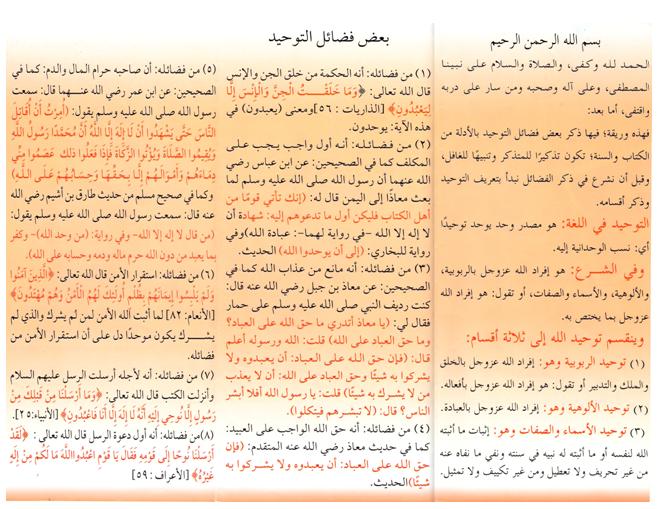 بسم الله الرحمن الرحيم
الحمد لله وكفى، والصلاة والسلام على نبينا
المصطفى، وعلى آله وصحبه ومن سار على دربه
واقتفى، أما بعد:
فهذه وريقة؛ فيها ذكر بعض فضائل التوحيد بالأدلة من
الكتاب والسنة؛ تكون تذكيرًا للمتذكر وتنبيهًا للغافل،
وقبل أن نشرع في ذكر الفضائل نبدأ بتعريف التوحيد
وذكر أقسامه.
التوحيد في اللغة: هو مصدر وحد يوحد توحيدًا
أي: نسب الوحدانية إليه.
وفي الشرع: هو إفراد الله عزوجل بالربوبية،
والألوهية، والأسماء والصفات، أو تقول: هو إفراد الله
عزوجل بما يختص به.
وينقسم توحيد الله إلى ثلاثة أقسام:
(١) توحيد الربوبية وهو: إفراد الله عزوجل بالخلق
والملك والتدبير أو تقول: هو إفراد الله عزوجل بأفعاله.
(٢) توحيد الألوهية وهو: إفراد الله عزوجل بالعبادة.
(٣) توحيد الأسماء والصفات وهو: إثبات ما أثبته
الله لنفسه أو ما أثبته له نبيه في سنته ونفي ما نفاه عنه
من غير تحريف ولا تعطيل ومن غير تكييف ولا تمثيل.
بعض فضائل التوحيد
(١) من فضائله: أنه الحكمة من خلق الجن والإنس
قال الله تعالى: ﴿وَمَا خَلَقْتُ الْجِنَّ وَالْإِنْسَ إِلَّا
لِيَعْبُدُونِ﴾ [الذاريات: ٥٦] ومعنى (يعبدون) في
هذه الآية: يوحدون.
(٢) من فضائله: أنه أول واجب يجب على
المكلف كما في الصحيحين: عن ابن عباس رضي
الله عنهما أن رسول الله صلى الله عليه وسلم لما
بعث معاذًا إلى اليمن قال له: (إنك تأتي قومًا من
أهل الكتاب فليكن أول ما تدعوهم إليه: شهادة أن
لا إله إلا الله -في رواية لهما-: عبادة الله) وفي
رواية للبخاري: (إلى أن يوحدوا الله) الحديث.
(٣) من فضائله: أنه مانع من عذاب الله كما في
الصحيحين: عن معاذ بن جبل رضي الله عنه قال:
كنت رديف النبي صلى الله عليه وسلم على حمار
فقال لي: (يا معاذ أتدري ما حق الله على العباد؟
وما حق العباد على الله) قلت: الله ورسوله أعلم
قال: (فإن حق الله على العباد: أن يعبدوه ولا
يشركوا به شيئًا وحق العباد على الله: أن لا يعذب
من لا يشرك به شيئًا) قلت: يا رسول الله أفلا أبشر
الناس؟ قال: (لا تبشرهم فيتكلوا).
(٤) من فضائله: أنه حق الله الواجب على العبيد:
كما في حديث معاذ رضي الله عنه المتقدم: (فإن
حق الله على العباد: أن يعبدوه ولا يشركوا به
شيئًا) الحديث.
(٥) من فضائله: أن صاحبه حرام المال والدم: كما في
الصحيحين: عن ابن عمر رضي الله عنهما قال: سمعت
رسول الله صلى الله عليه وسلم يقول: (أُمِرْتُ أَنْ أُقَاتِلَ
النَّاسَ حَتَّى يَشْهَدُوا أَنْ لَا إِلَهَ إِلَّا اللَّهُ وَأَنَّ مُحَمَّدًا رَسُولُ اللَّهِ
وَيُقِيمُوا الصَّلَاةَ وَيُؤْتُوا الزَّكَاةَ فَإِذَا فَعَلُوا ذَلِكَ عَصَمُوا مِنِّي
دِمَاءَهُمْ وَأَمْوَالَهُمْ إِلَّا بِحَقِّهَا وَحِسَابُهُمْ عَلَى اللَّهِ)
وكما في صحيح مسلم من حديث طارق بن أشيم رضي الله
عنه قال: سمعت رسول الله صلى الله عليه وسلم يقول:
(من قال لا إله إلا الله- وفي رواية: (من وحد الله)- وكفر
بما يعبد من دون الله حرم ماله ودمه وحسابه على الله).
(٦) من فضائله: استقرار الأمن قال الله تعالى: ﴿الَّذِينَ آمَنُوا
وَلَمْ يَلْبِسُوا إِيمَانَهُمْ بِظُلْمٍ أُولَئِكَ لَهُمُ الْأَمْنُ وَهُمْ مُهْتَدُونَ﴾
[الأنعام: ٨٢] لما أثبت الله الأمن لمن لم يشرك والذي لم
يشرك يكون موحدًا دل على أن استقرار الأمن من
فضائله.
(٧) من فضائله: أنه لأجله أرسلت الرسل عليهم السلام
وأنزلت الكتب قال الله تعالى: ﴿وَمَا أَرْسَلْنَا مِنْ قَبْلِكَ مِنْ
رَسُولٍ إِلَّا نُوحِي إِلَيْهِ أَنَّهُ لَا إِلَهَ إِلَّا أَنَا فَاعْبُدُونِ﴾ [الأنبياء: ٢٥].
(٨) من فضائله: أنه أول دعوة الرسل قال الله تعالى: ﴿لَقَدْ
أَرْسَلْنَا نُوحًا إِلَى قَوْمِهِ فَقَالَ يَا قَوْمِ اعْبُدُوا اللَّهَ مَا لَكُمْ مِنْ إِلَهٍ
غَيْرُهُ﴾ [الأعراف: ٥٩]